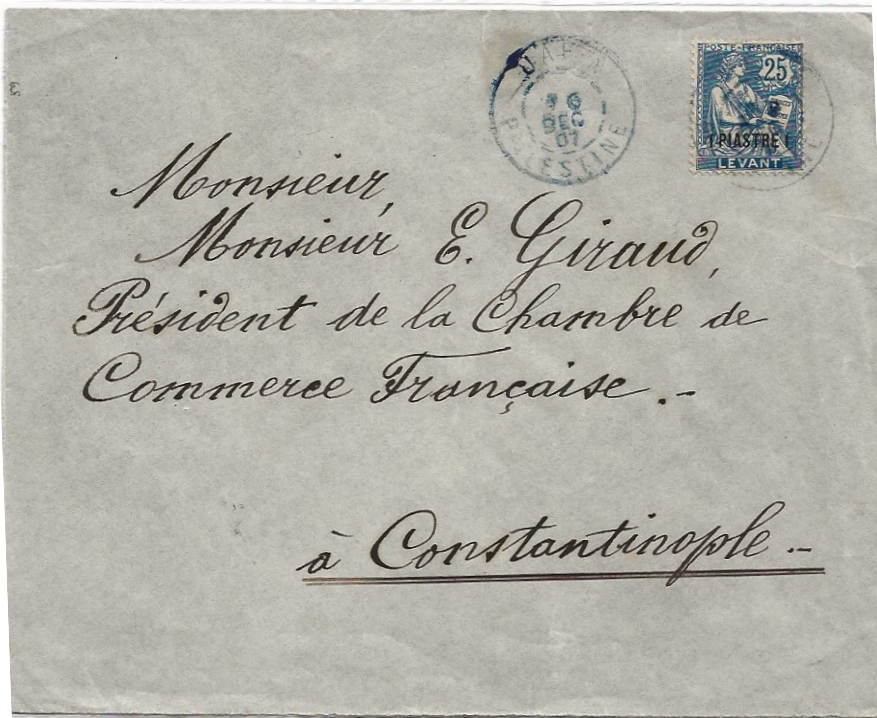 JAFFA
DEC
PALESTINE
POSTE FRANÇAISE
25
1 PIASTRE 1
LEVANT
Monsieur,
Monsieur E. Giraud,
Président de la Chambre de
Commerce Française.-
à Constantinople.-